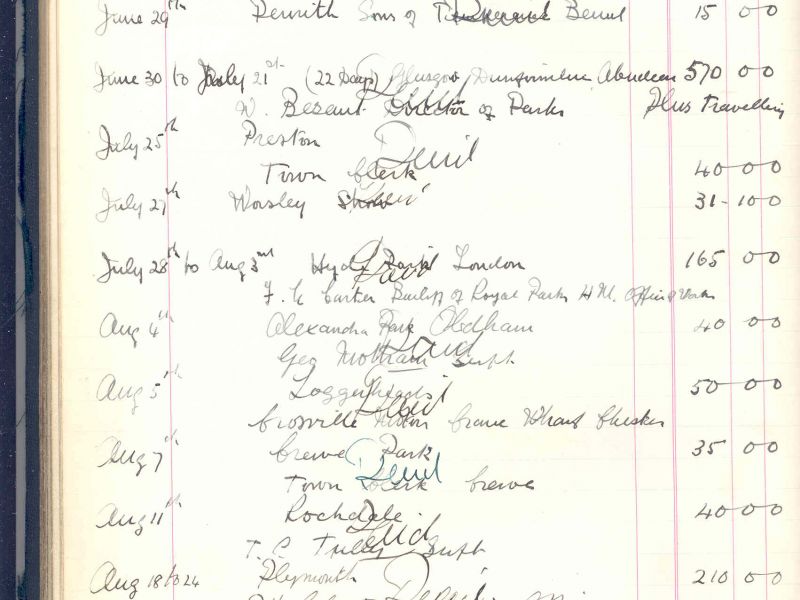 June 29th Penrith Sons of T Bemil 15 00
June 30 to July 21st (22 Days) Glasgow Dunfirmline Aberdeen 570 00
W. Besant Director of Parks Plus Travelling
July 25th Preston
Town Clerk 40 00
July 27th Worsley Show 31-100
July 28th to Aug 3rd Hyde Park London 165 00
F. G. Carter Bailiff of Royal Parks H M. Office of Works
Aug 4th Alexandra Park Oldham 40 00
Geo Mottram Supt
Aug 5th Loggerheads 50 00
Crosville Motor Crane Wharf Chester
Aug 7th Crewe Park 35 00
Town Clerk Crewe
Aug 11th Rochdale 40 00
T. C. Supt
Aug 18 to 24 Plymouth 210 00